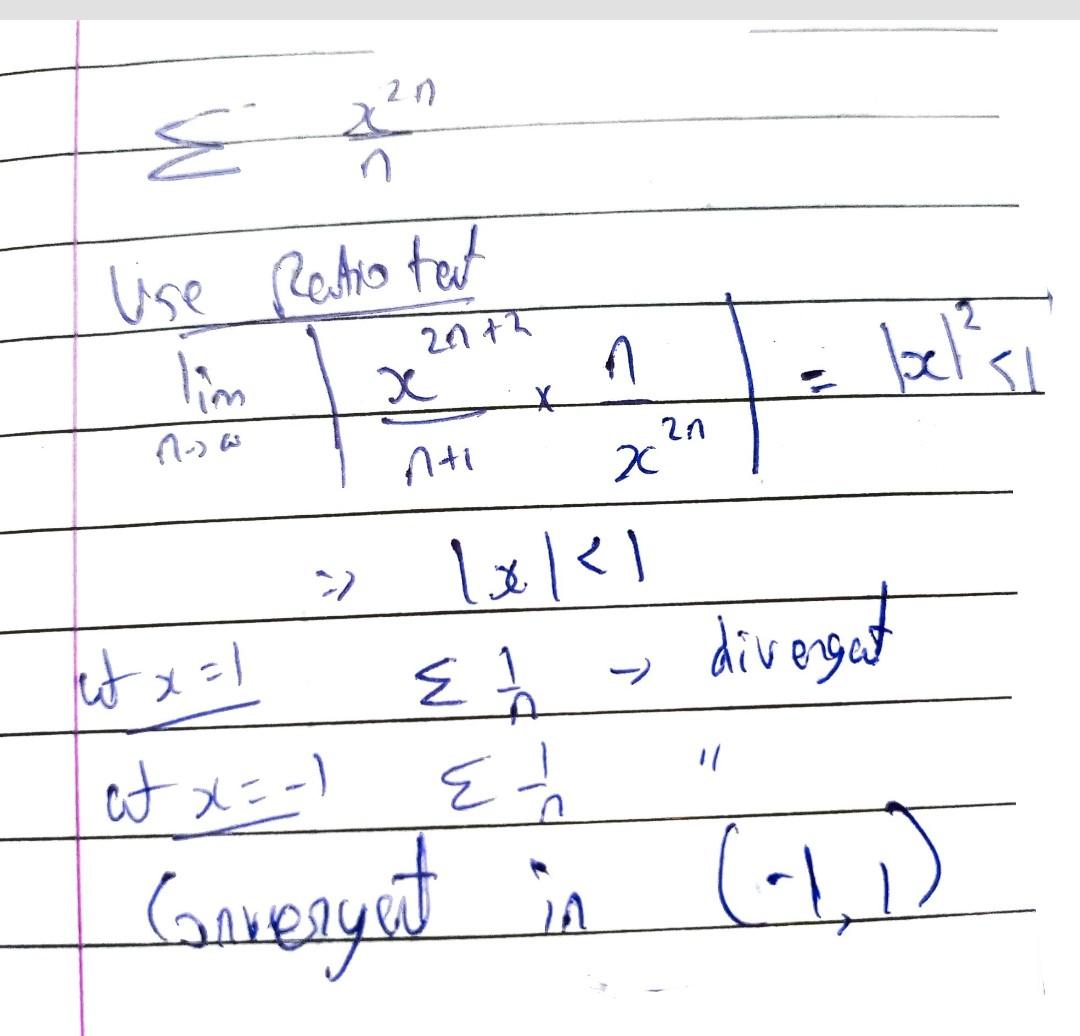 Σ x^{2n}/n
Use Ratio test
lim n→∞ | x^{2n+2}/n+1 × n/x^{2n} | = |x|^2 < 1
=> |x| < 1
at x = 1 Σ 1/n → divergent
at x = -1 Σ 1/n "
Convergent in (-1, 1)